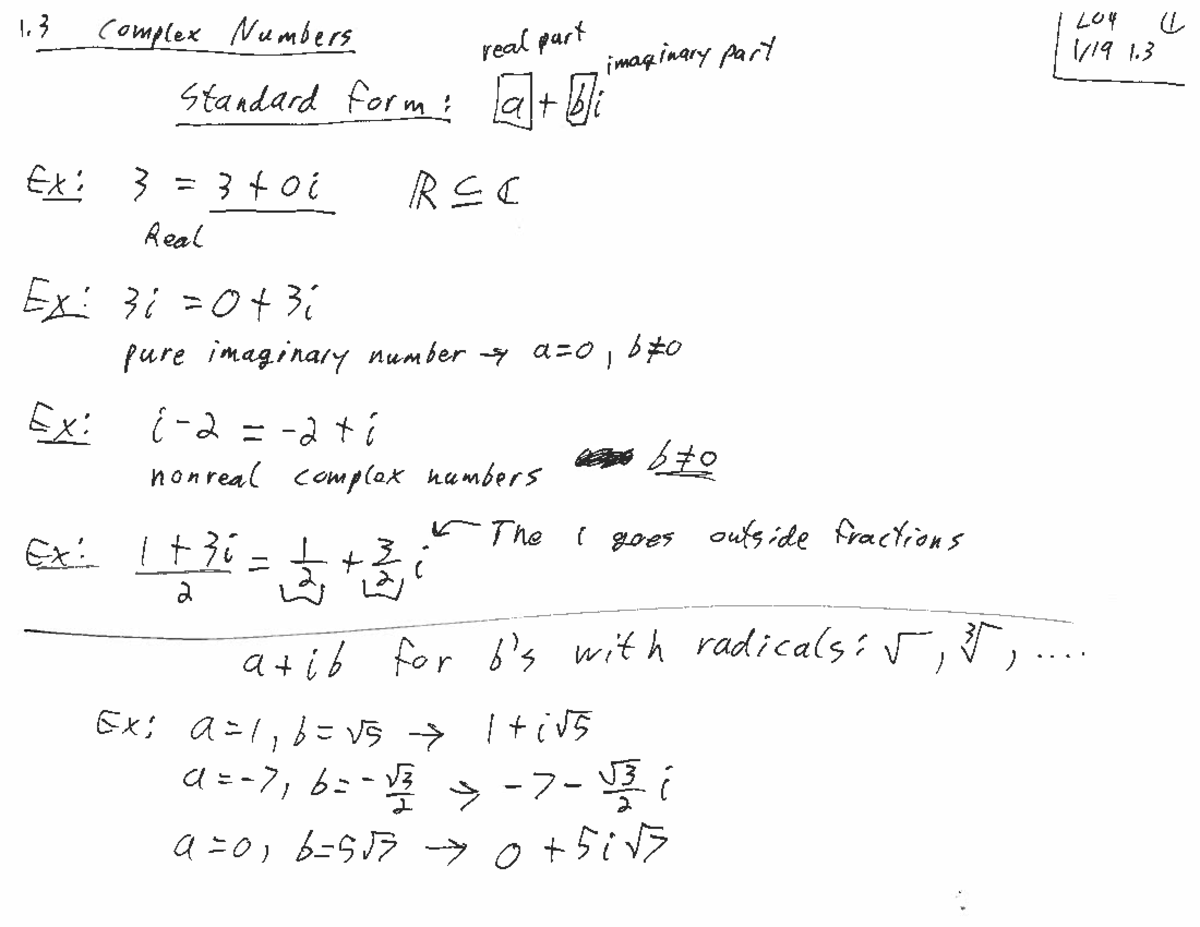 1.3 Complex Numbers
L04 ①
1/19 1.3
real part
imaginary part
Standard form: a + bi
Ex: 3 = 3 + 0i ℝ ⊆ ℂ
Real
Ex: 3i = 0 + 3i
pure imaginary number → a=0, b≠0
Ex: i-2 = -2 + i
nonreal complex numbers b≠0
Ex: (1 + 3i)/2 = 1/2 + 3/2 i ← The i goes outside fractions
a + ib for b's with radicals: √, ∛, ....
Ex: a=1, b=√5 → 1 + i√5
a=-7, b=-√3/2 → -7 - √3/2 i
a=0, b=5√7 → 0 + 5i√7